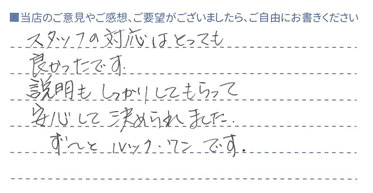 ■当店のご意見やご感想、ご要望がございましたら、ご自由にお書きください
スタッフの対応はとっても
良かったです.
説明も しっかりしてもらって
安心して 決められました.
ず〜っと ルック・ワン です.